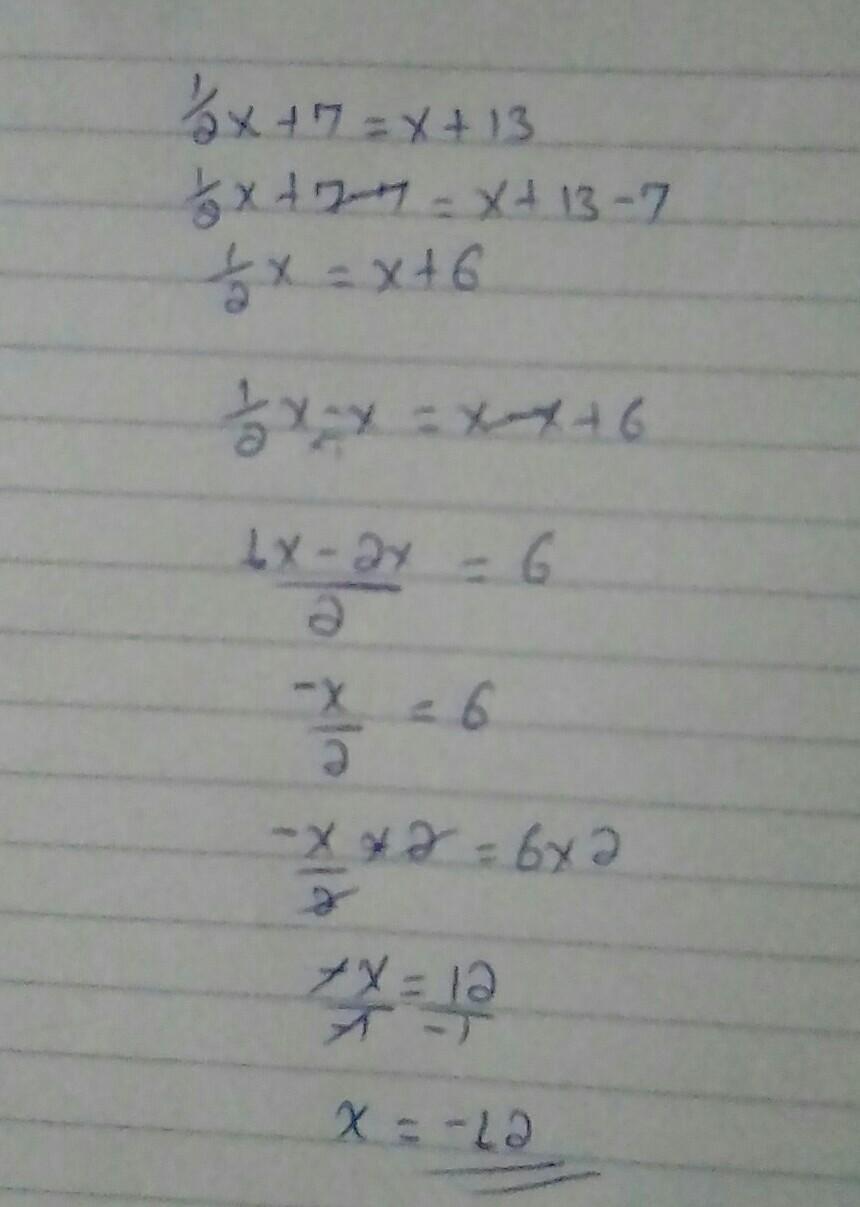 ½x + 7 = x + 13
½x + 7 - 7 = x + 13 - 7
½x = x + 6
½x - x = x - x + 6
1x - 2x / 2 = 6
-x / 2 = 6
-x / 2 × 2 = 6 × 2
-x / -1 = 12 / -1
x = -12